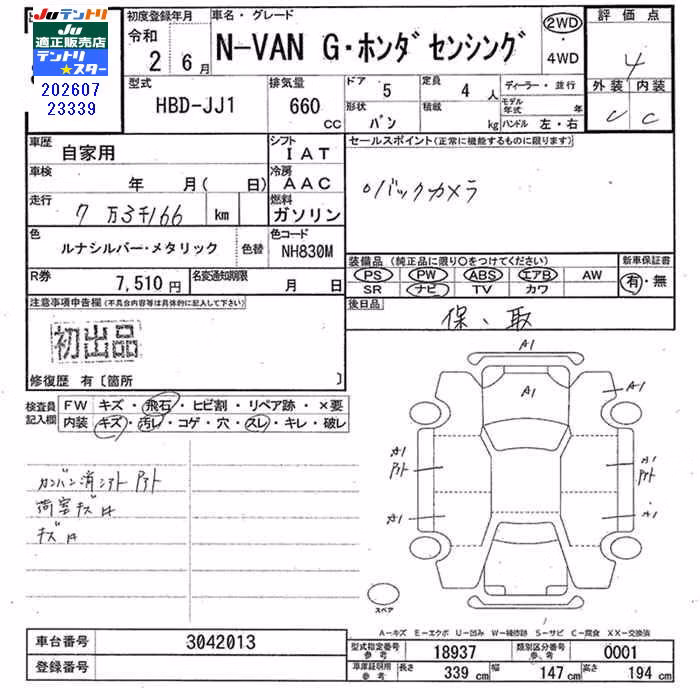 Juテントリ
Ju
適正販売店
テントリ
★スター
202607
23339
初度登録年月
令和
2年 6月
車名・グレード
N-VAN G・ホンダ センシング
2WD
4WD
評価点
4
外装 内装
C C
型式
HBD-JJ1
排気量
660 CC
ドア 5
定員 4人
形状 バン
積載 kg
ディーラー・並行
モデル年式 年
ハンドル 左・右
車歴
自家用
シフト
IAT
車検
年 月( 日)
冷房
AAC
走行
7万3千166 km
燃料
ガソリン
色
ルナシルバー・メタリック
色替
色コード
NH830M
R券
7,510円
名変通知期限
月 日
セールスポイント(正常に機能するものに限ります)
○バックカメラ
装備品(純正品に限り○をつけてください)
新車保証書
PS PW ABS エアB AW
有・無
SR ナビ TV カワ
後日品
保、取
注意事項申告欄(不具合内容等は具体的に記入して下さい)
初出品
修復歴 有〔箇所 〕
検査員
記入欄
FW キズ・飛石・ヒビ割・リペア跡・×要
内装 キズ・汚レ・コゲ・穴・スレ・キレ・破レ
カンバン消シアト アト
荷室キズ
キズ
A1
A1
A1
A1
アト
A1
アト
A1
A1
A1
スペア
A-キズ E-エクボ U-凹み W-補修跡 S-サビ C-腐食 XX-交換済
車台番号
3042013
登録番号
型式指定番号
参考
18937
類別区分番号
参考
0001
車庫証明用
参考
長さ 339 cm
幅 147 cm
高さ 194 cm